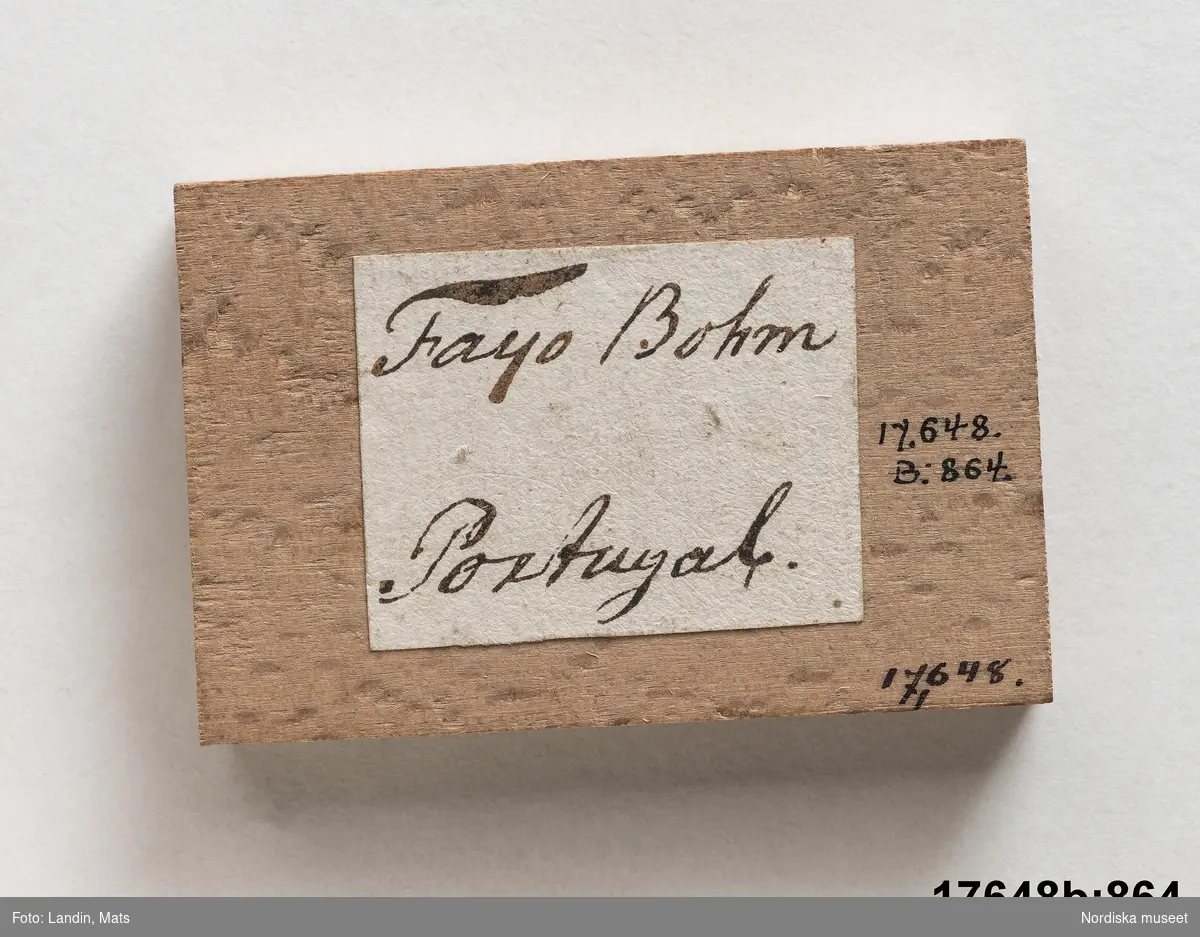 Fayo Bohm
Portugal.
17.648.
B: 864.
17,648.
17648b:864
Foto: Landin, Mats
Nordiska museet